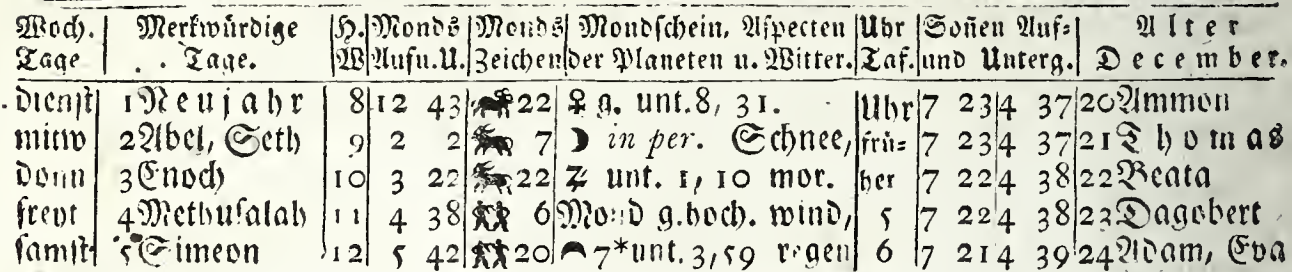 Woch. | Merkwürdige | H. | Monds | Monds | Mondschein, Aspecten | Uhr | Soñen Auf= | Alter
Tage | Tage. | W | Aufu.U. | Zeichen | der Planeten u. Witter. | Taf. | und Unterg. | December.
dienst | 1 Neujahr | 8 | 12 43 | 22 | ♀ g. unt. 8, 31. | Uhr | 7 23 | 4 37 | 20 Ammon
mitw | 2 Abel, Seth | 9 | 2 2 | 7 | ☽ in per. Schnee, | frü= | 7 23 | 4 37 | 21 Thomas
donn | 3 Enoch | 10 | 3 22 | 22 | ♃ unt. 1, 10 mor. | her | 7 22 | 4 38 | 22 Beata
freyt | 4 Methusalah | 11 | 4 38 | 6 | Mond g. hoch. wind, | 5 | 7 22 | 4 38 | 23 Dagobert
samst | 5 Simeon | 12 | 5 42 | 20 | 7* unt. 3, 59 regen | 6 | 7 21 | 4 39 | 24 Adam, Eva